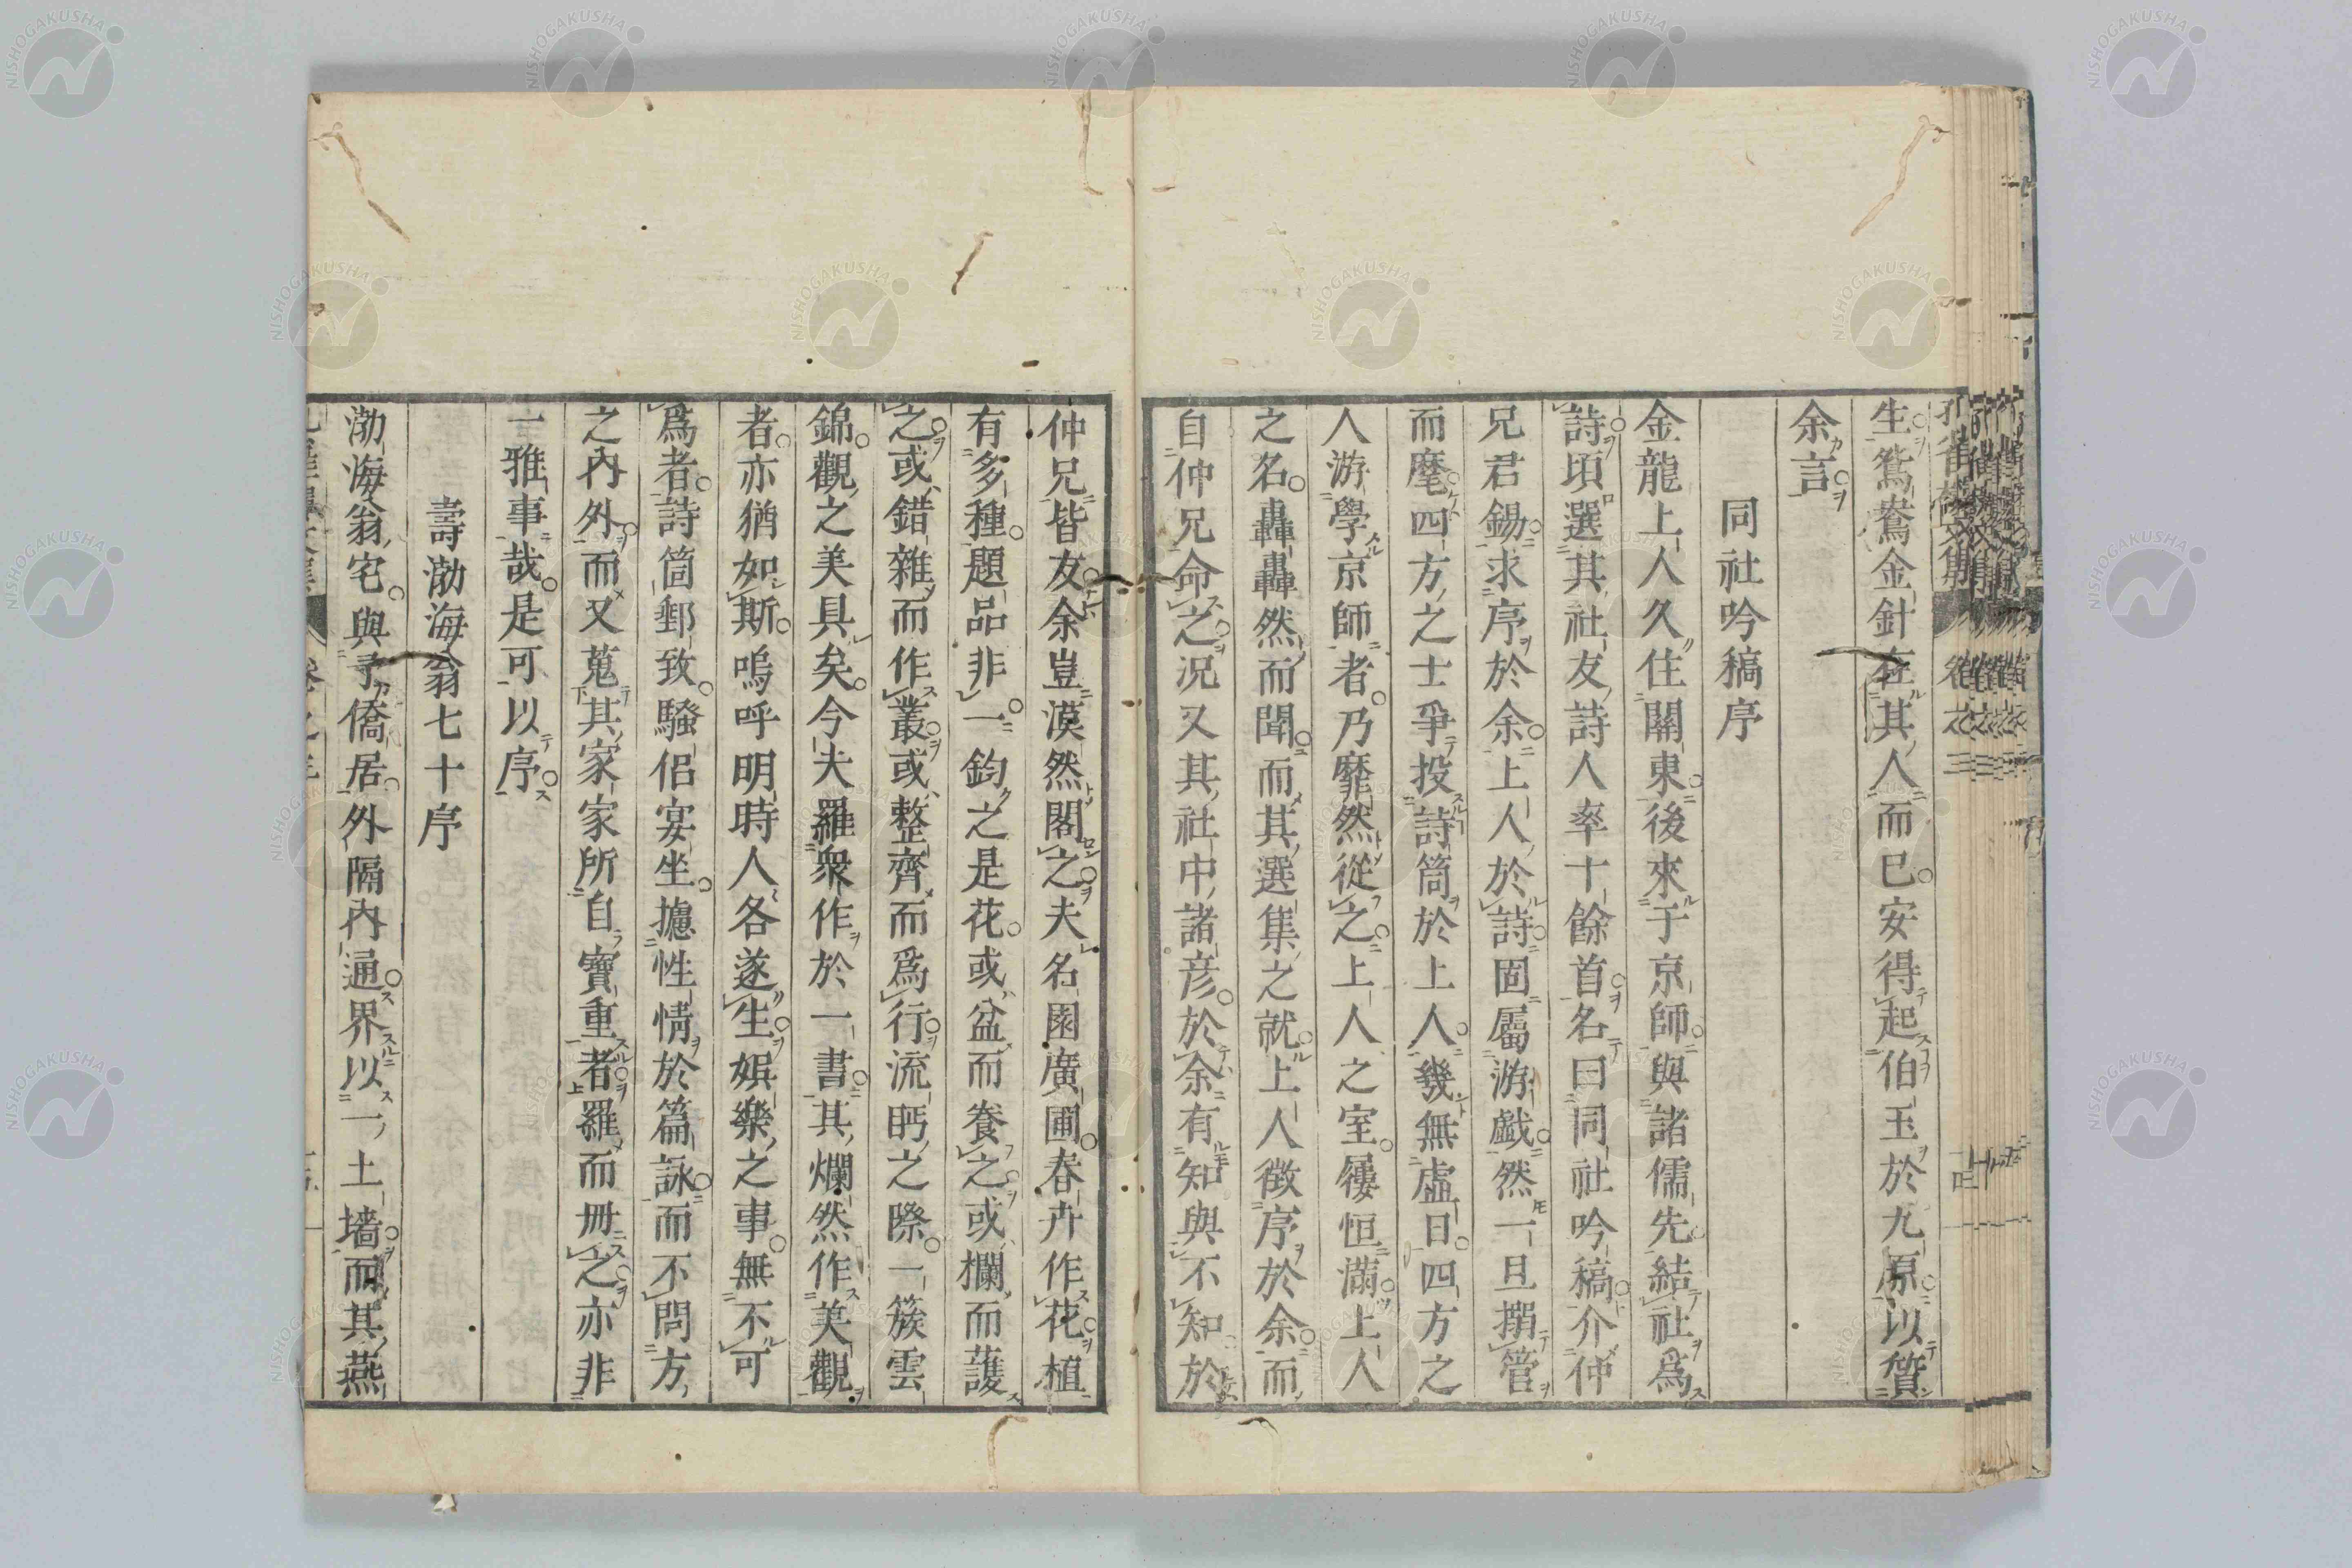 生鴛鴦金針在其人而已安得起伯玉於九原以質
余言
同社吟稿序
金龍上人久住關東後來于京師與諸儒先結社爲
詩頃選其社友詩人率十餘首名曰同社吟稿介仲
兄君錫求序於余上人於詩固屬游戲然一旦捎管
而麾四方之士爭投詩筒於上人幾無虛日四方之
人游學京師者乃靡然從之上人之室屨恒滿上人
之名轟轟然而聞而其選集之就上人徵序於余而
自仲兄命之況又其社中諸彦於余有知與不知於
仲兄皆友余豈漠然閣之夫名園廣圃春卉作花植
有多種題品非一鈞之是花或盆而養之或欄而護
之或錯雜而作叢或整齊而爲行流眄之際一簇雲
錦觀之美具矣今夫羅衆作於一書其爛然作美觀
者亦猶如斯嗚呼明時人各遂生娯樂之事無不可
爲者詩筒郵致騷侶宴坐攄性情於篇詠而不問方
之內外而又蒐其家家所自寶重者羅而冊之亦非
一雅事哉是可以序
壽渤海翁七十序
渤海翁宅與予僑居外隔內通界以一土墻而其燕